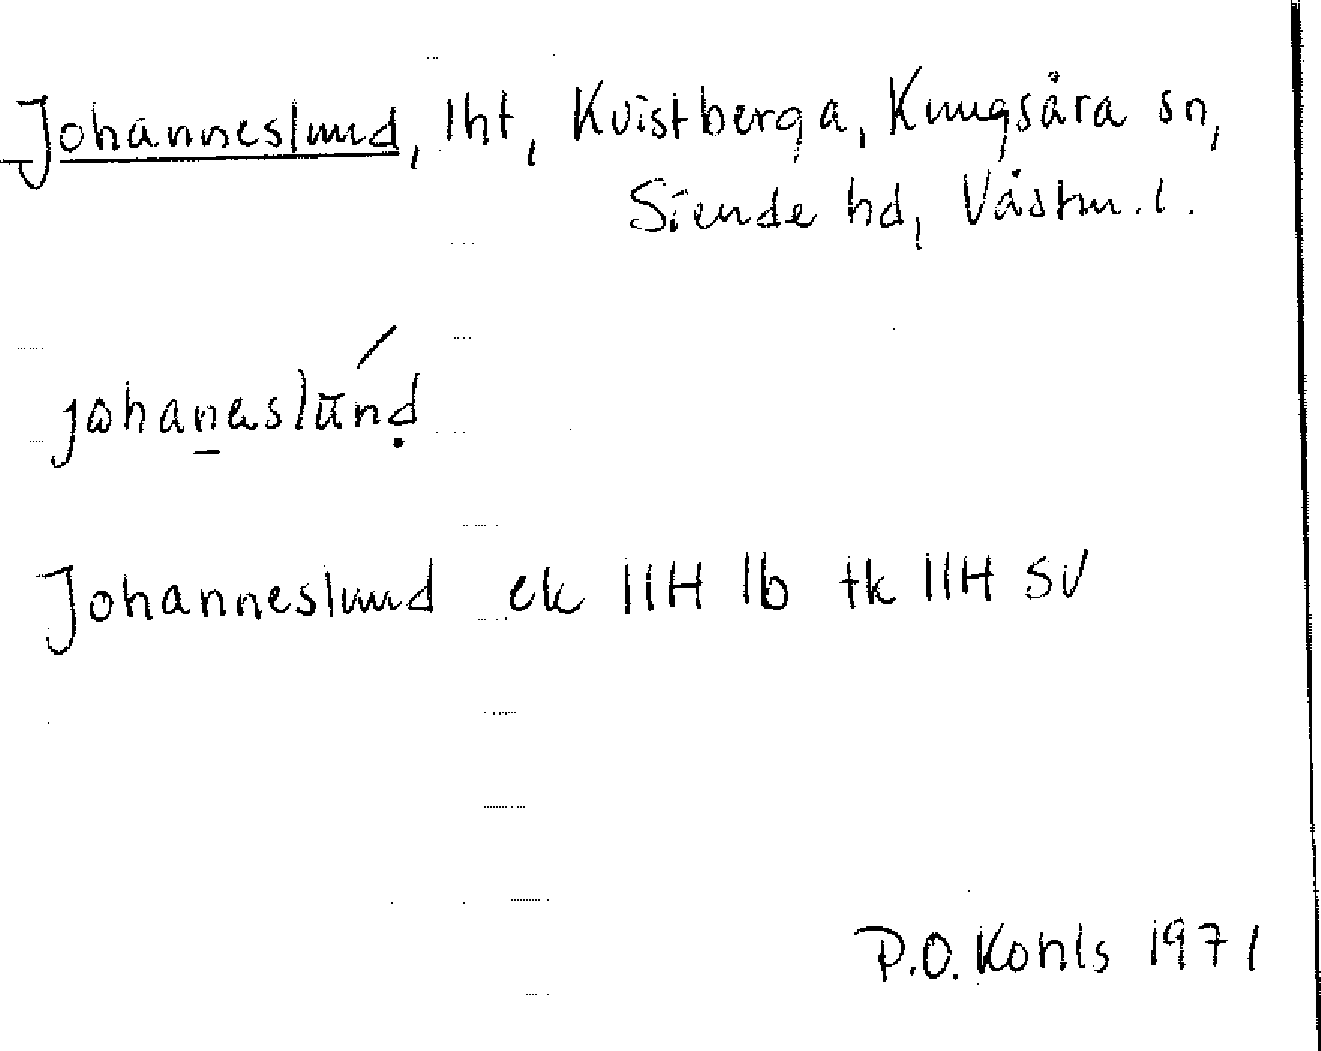 Johanneslund, lht, Kvistberga, Kungsåra sn,
Siende hd, Västm. l.
johanəslund
Johanneslund ek 11H 1b tk 11H SV
P.O. Kohls 1971